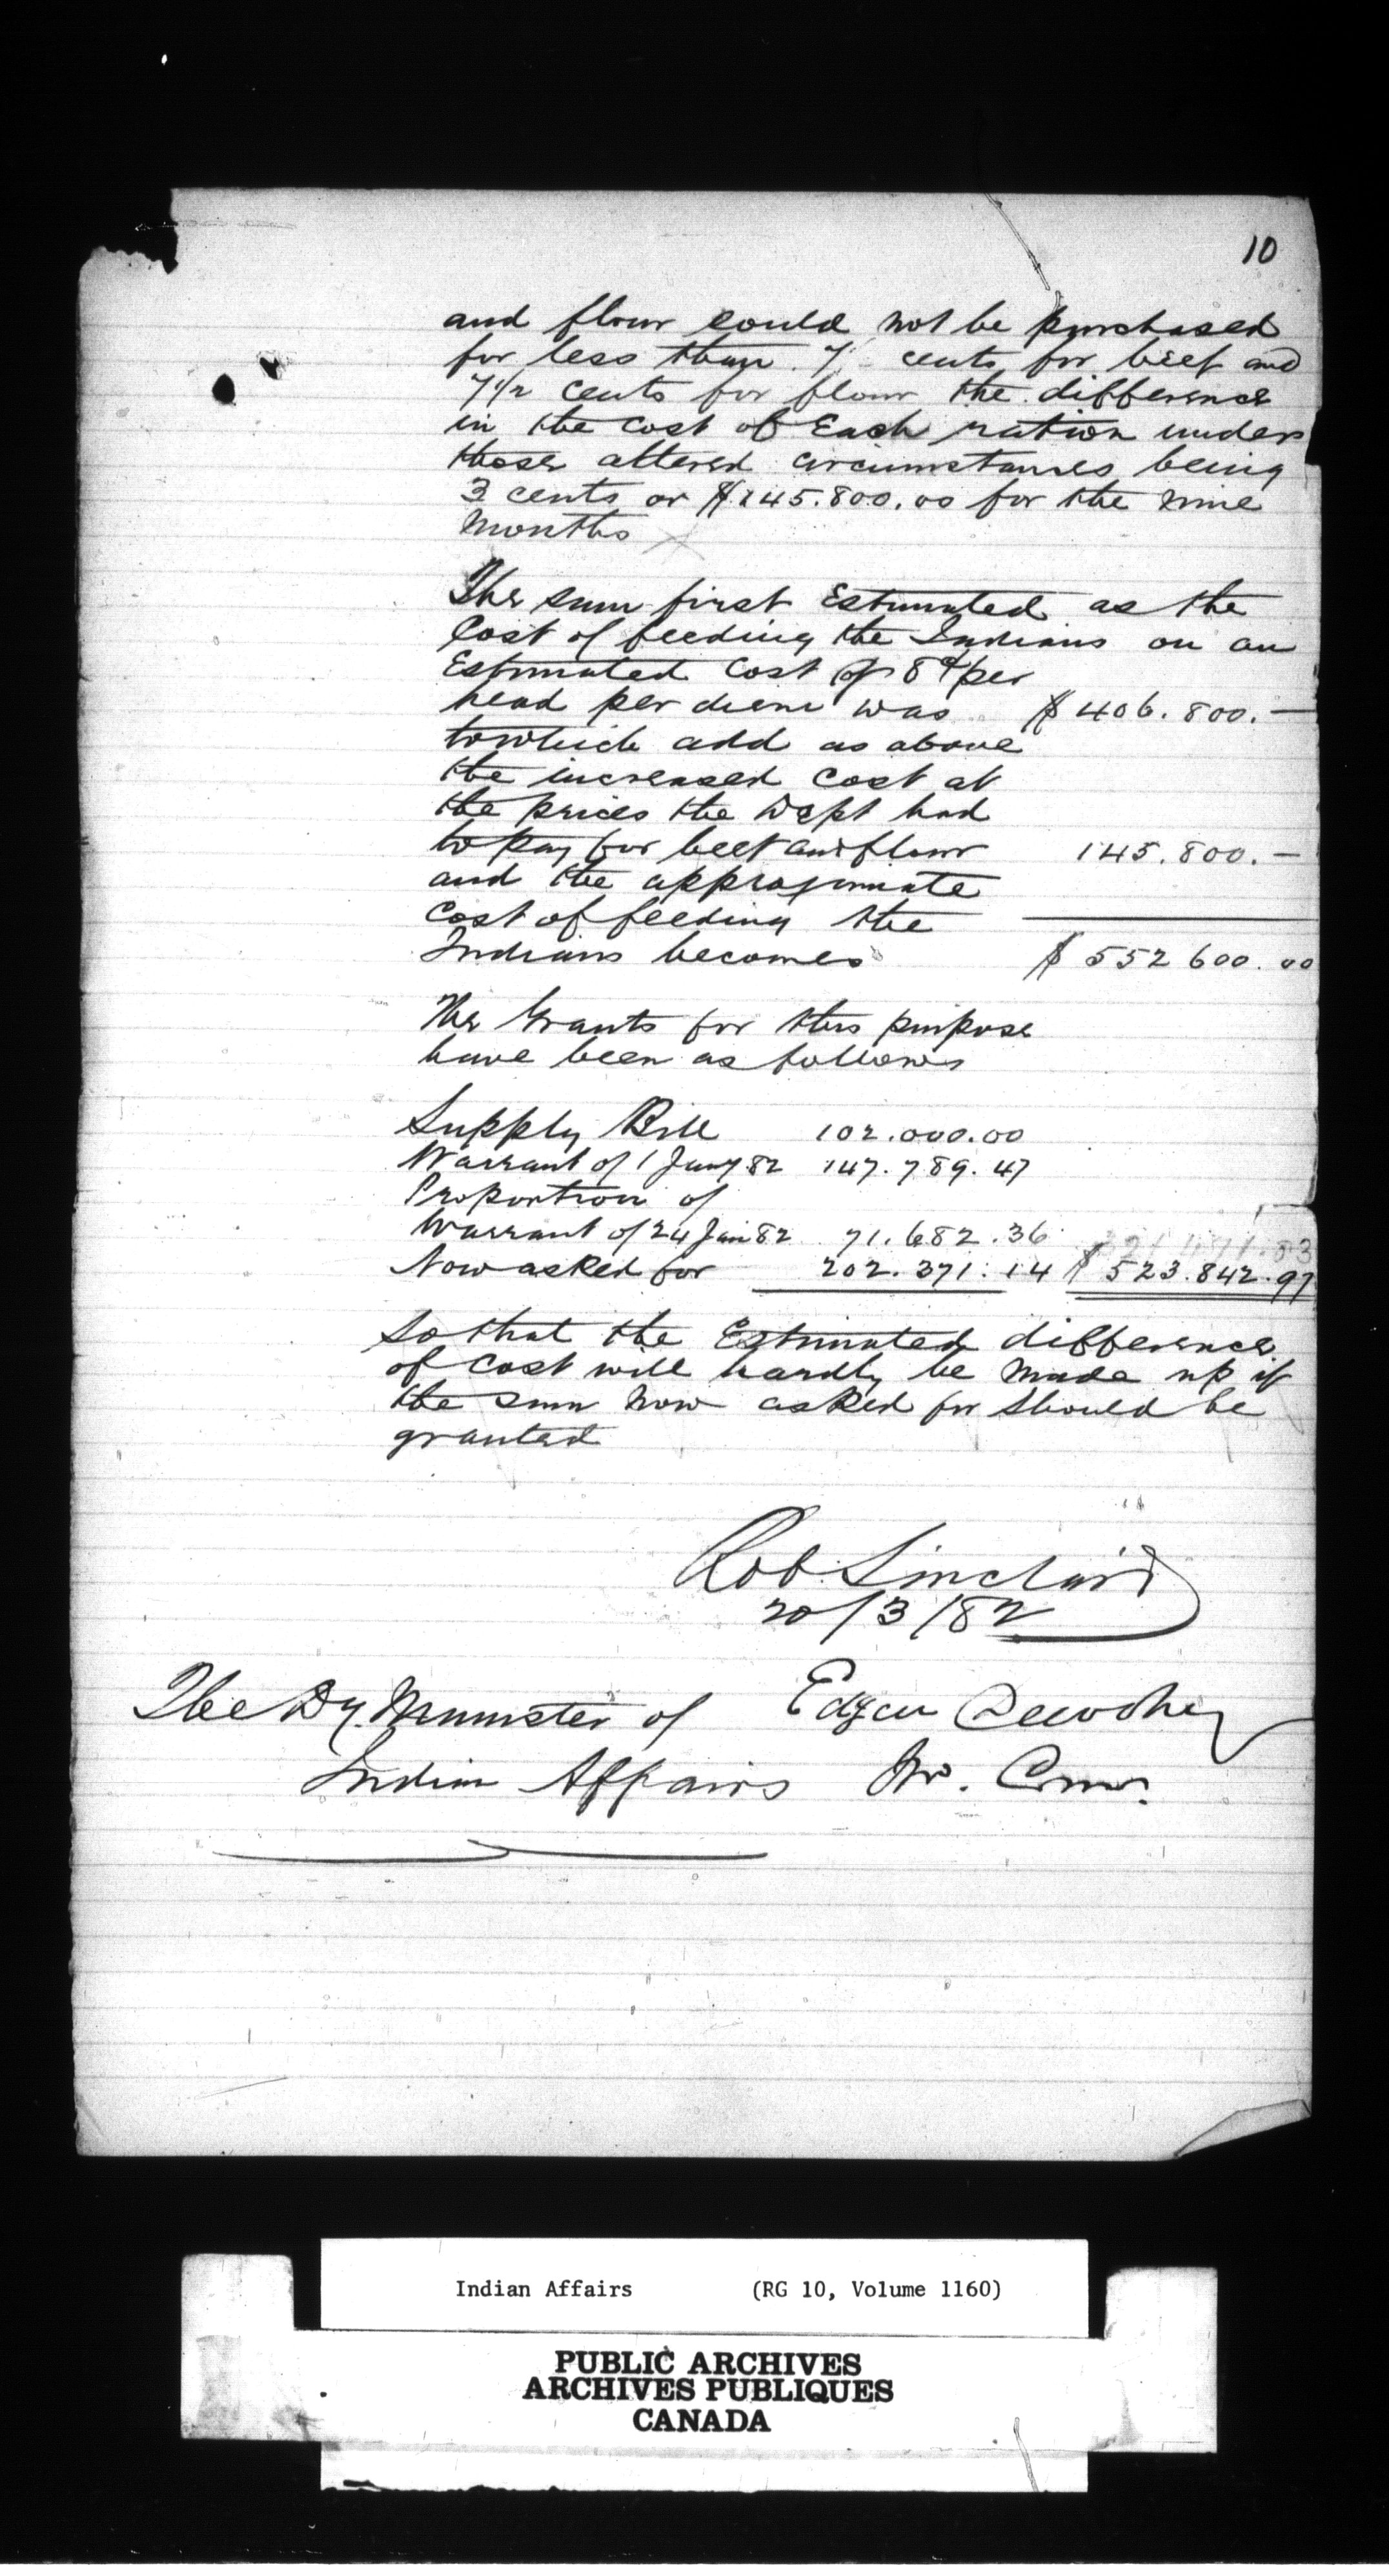 10
and flour could not be purchased
for less than 7 cents for beef and
7 1/2 cents for flour the difference
in the cost of Each ration under
these altered circumstances being
3 cents or $145.800.00 for the nine
months
The sum first Estimated as the
Cost of feeding the Indians on an
Estimated Cost of 8 ¢ per
head per diem was $406.800.—
to which add as above
the increased cost at
the prices the Dept had
to pay for beef and flour 145.800.—
and the approximate
Cost of feeding the
Indians becomes $552 600.00
The Grants for this purpose
have been as follows
Supply Bill 102.000.00
Warrant of 1 Jany 82 147.789.47
Proportion of
Warrant of 24 Jan 82 71.682.36 321 471.83
Now asked for 202.371.14 $523.842.97
So that the Estimated difference
of cost will hardly be made up if
the sum now asked for should be
granted
Rob. Sinclair
20/3/82
The Dy. Minister of Edgar Dewdney
Indian Affairs In. Comr.
Indian Affairs (RG 10, Volume 1160)
PUBLIC ARCHIVES
ARCHIVES PUBLIQUES
CANADA